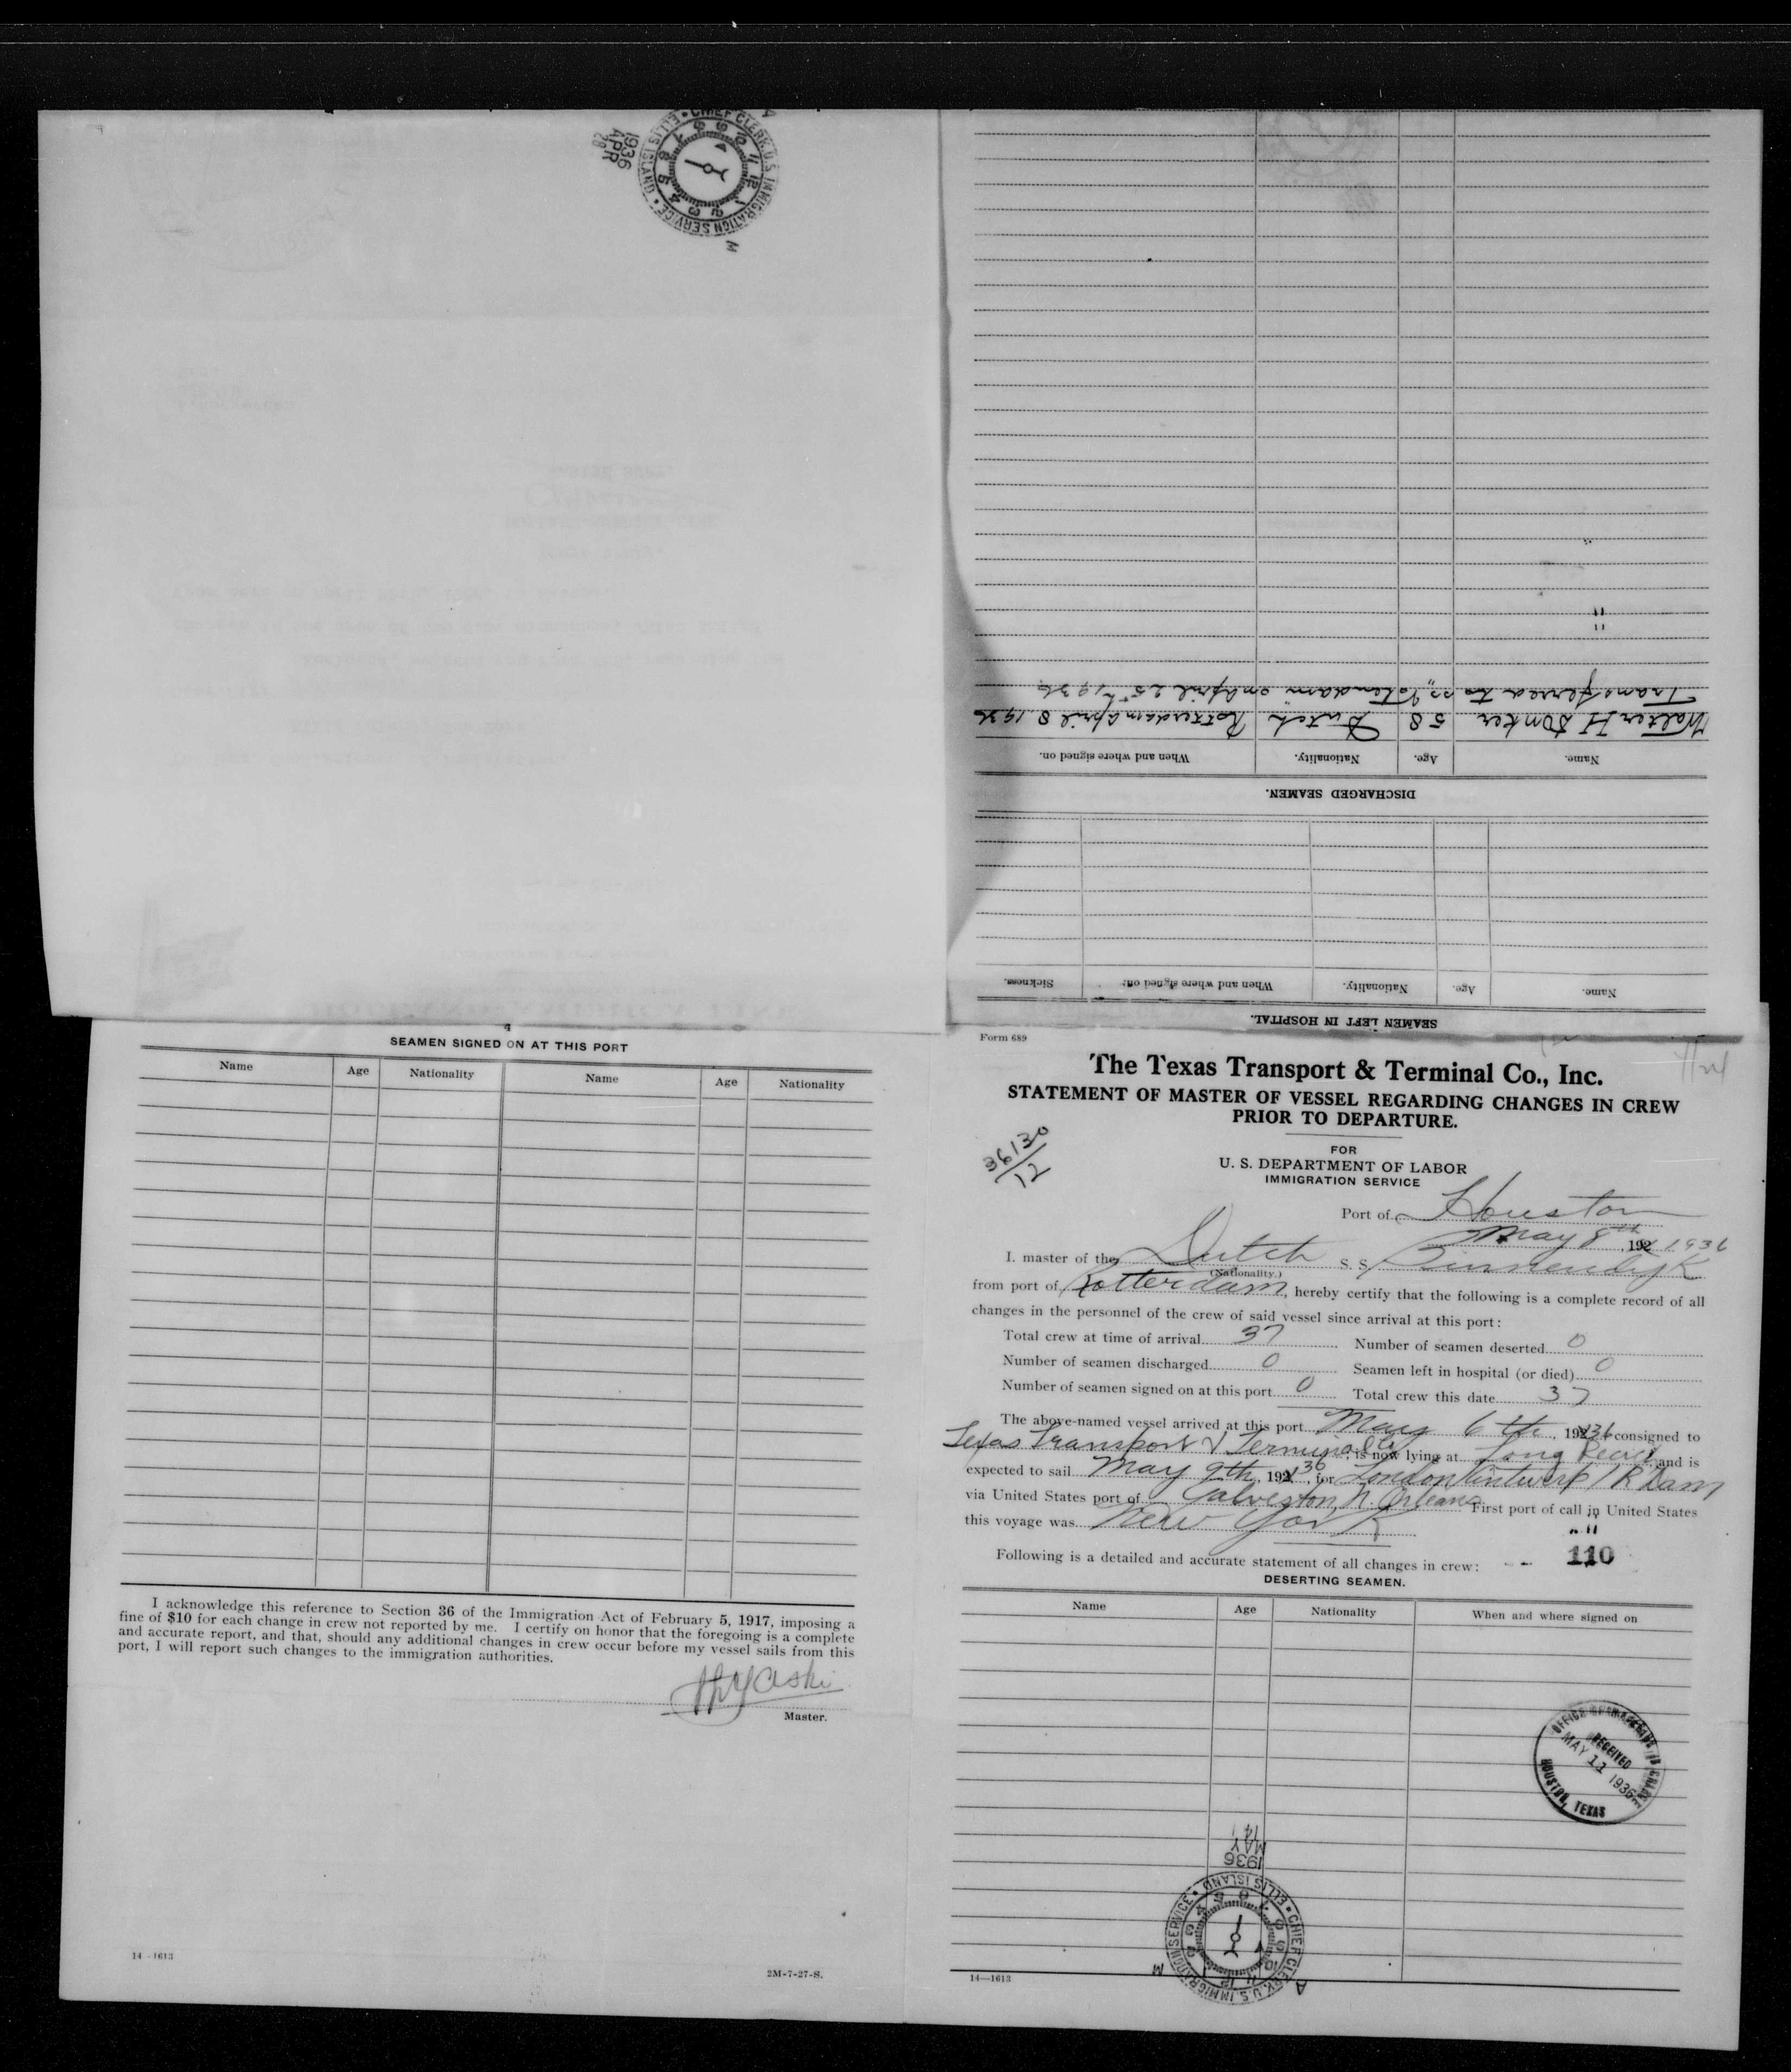 CHIEF CLERK, U.S. IMMIGRATION SERVICE • ELLIS ISLAND •
1936
APR
28
M
SEAMEN LEFT IN HOSPITAL.
Name. Age. Nationality. When and where signed on. Sickness.
DISCHARGED SEAMEN.
Name. Age. Nationality. When and where signed on.
Walter H Donker 58 Dutch Rotterdam April 8 1936
Transferred to ss „ Volendam " on April 25th 1936
4
SEAMEN SIGNED ON AT THIS PORT
Name Age Nationality Name Age Nationality
I acknowledge this reference to Section 36 of the Immigration Act of February 5, 1917, imposing a
fine of $10 for each change in crew not reported by me. I certify on honor that the foregoing is a complete
and accurate report, and that, should any additional changes in crew occur before my vessel sails from this
port, I will report such changes to the immigration authorities.
Master.
14—1613
2M-7-27-S.
Form 689
The Texas Transport & Terminal Co., Inc.
STATEMENT OF MASTER OF VESSEL REGARDING CHANGES IN CREW
PRIOR TO DEPARTURE.
36130
12
FOR
U. S. DEPARTMENT OF LABOR
IMMIGRATION SERVICE
Port of Houston
May 8th, 192 1936
I. master of the Dutch S. S. Binnendijk
(Nationality.)
from port of Rotterdam, hereby certify that the following is a complete record of all
changes in the personnel of the crew of said vessel since arrival at this port:
Total crew at time of arrival 37 Number of seamen deserted 0
Number of seamen discharged 0 Seamen left in hospital (or died) 0
Number of seamen signed on at this port 0 Total crew this date 37
The above-named vessel arrived at this port May 6th, 1936 consigned to
Texas Transport & Terminal Co, is now lying at Long Reach, and is
expected to sail May 9th, 1936, for London/Antwerp/R'Dam
via United States port of Galveston, N. Orleans First port of call in United States
this voyage was New York
110
Following is a detailed and accurate statement of all changes in crew:
DESERTING SEAMEN.
Name Age Nationality When and where signed on
RECEIVED
MAY 11 1936
HOUSTON, TEXAS
1936
MAY
14
CHIEF CLERK, U.S. IMMIGRATION SERVICE • ELLIS ISLAND •
A
M
14—1613